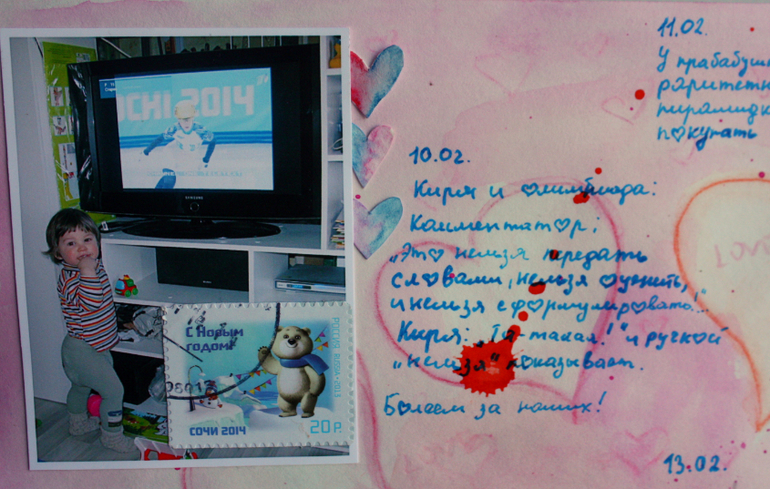 SOCHI 2014
SAMSUNG
С Новым
годом!
РОССИЯ RUSSIA • 2013
СОЧИ 2014
20 Р.
10.02.
Киря и олимпиада:
Комментатор:
„Это нельзя передать
словами, нельзя оценить,
и нельзя сформулировать!"
Киря: „Тя-такая!" и ручкой
„нельзя" показывает.
Болеем за наших!
11.02.
У прабабуш
раритетн
пирамидк
покупать
13.02.